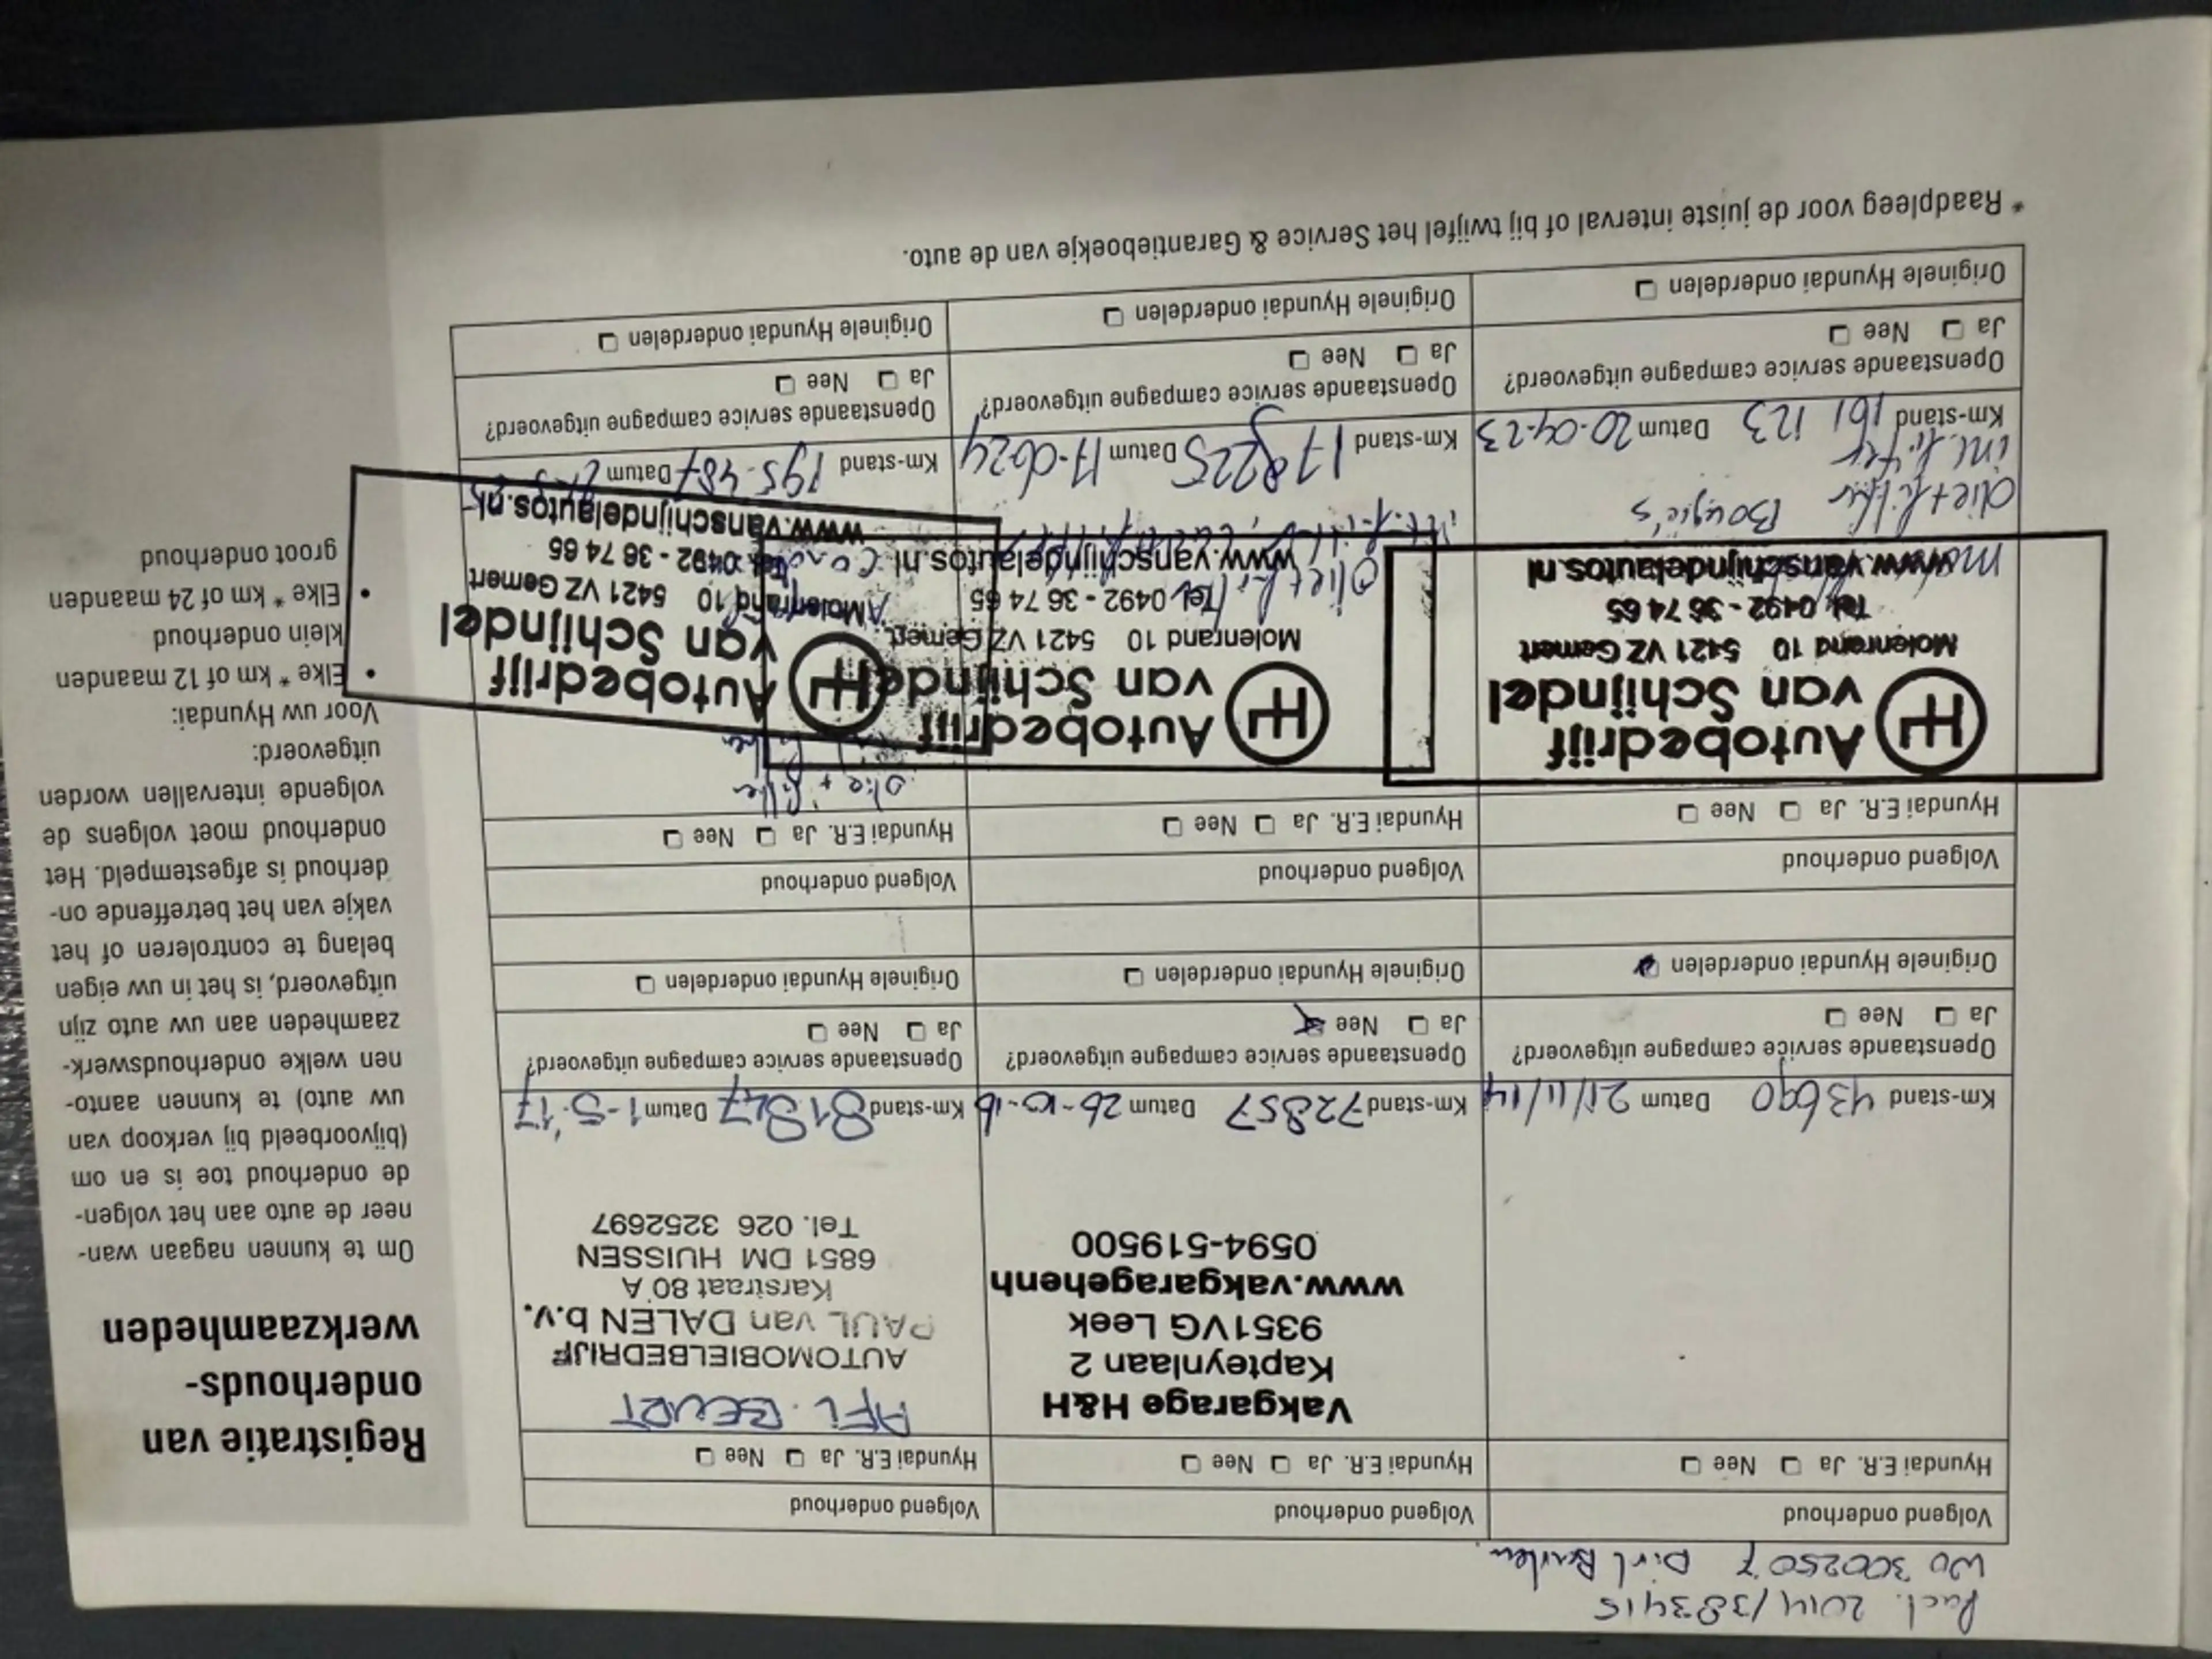 2014/383415
WO 3002507
Volgend onderhoud
Hyundai E.R. Ja Nee
Km-stand 43690 Datum 21/11/14
Openstaande service campagne uitgevoerd?
Ja Nee
Originele Hyundai onderdelen
Volgend onderhoud
Hyundai E.R. Ja Nee
Vakgarage H&H
Kapteynlaan 2
9351VG Leek
www.vakgaragehenh
0594-519500
Km-stand 72857 Datum 26-10-16
Openstaande service campagne uitgevoerd?
Ja Nee
Originele Hyundai onderdelen
Volgend onderhoud
Hyundai E.R. Ja Nee
AFL. BEURT
AUTOMOBIELBEDRIJF
PAUL van DALEN b.v.
Karstraat 80 A
6851 DM HUISSEN
Tel. 026 3252697
Km-stand 81847 Datum 1-5-'17
Openstaande service campagne uitgevoerd?
Ja Nee
Originele Hyundai onderdelen
Volgend onderhoud
Hyundai E.R. Ja Nee
Autobedrijf
van Schijndel
Molenrand 10 5421 VZ Gemert
Tel. 0492 - 36 74 65
www.vanschijndelautos.nl
olie+filter Bougie's
int. filter
Km-stand 161 123 Datum 20-04-23
Openstaande service campagne uitgevoerd?
Ja Nee
Originele Hyundai onderdelen
Volgend onderhoud
Hyundai E.R. Ja Nee
Autobedrijf
van Schijndel
Molenrand 10 5421 VZ Gemert
Tel. 0492 - 36 74 65
www.vanschijndelautos.nl
olie+filter
Km-stand 178225 Datum 17-0624
Openstaande service campagne uitgevoerd?
Ja Nee
Originele Hyundai onderdelen
Volgend onderhoud
Hyundai E.R. Ja Nee
olie + filter
Autobedrijf
van Schijndel
Molenrand 10 5421 VZ Gemert
Tel. 0492 - 36 74 65
www.vanschijndelautos.nl
Km-stand 195.487 Datum
Openstaande service campagne uitgevoerd?
Ja Nee
Originele Hyundai onderdelen
* Raadpleeg voor de juiste interval of bij twijfel het Service & Garantieboekje van de auto.
Registratie van
onderhouds-
werkzaamheden
Om te kunnen nagaan wan-
neer de auto aan het volgen-
de onderhoud toe is en om
(bijvoorbeeld bij verkoop van
uw auto) te kunnen aanto-
nen welke onderhoudswerk-
zaamheden aan uw auto zijn
uitgevoerd, is het in uw eigen
belang te controleren of het
vakje van het betreffende on-
derhoud is afgestempeld. Het
onderhoud moet volgens de
volgende intervallen worden
uitgevoerd:
Voor uw Hyundai:
• Elke * km of 12 maanden
klein onderhoud
• Elke * km of 24 maanden
groot onderhoud